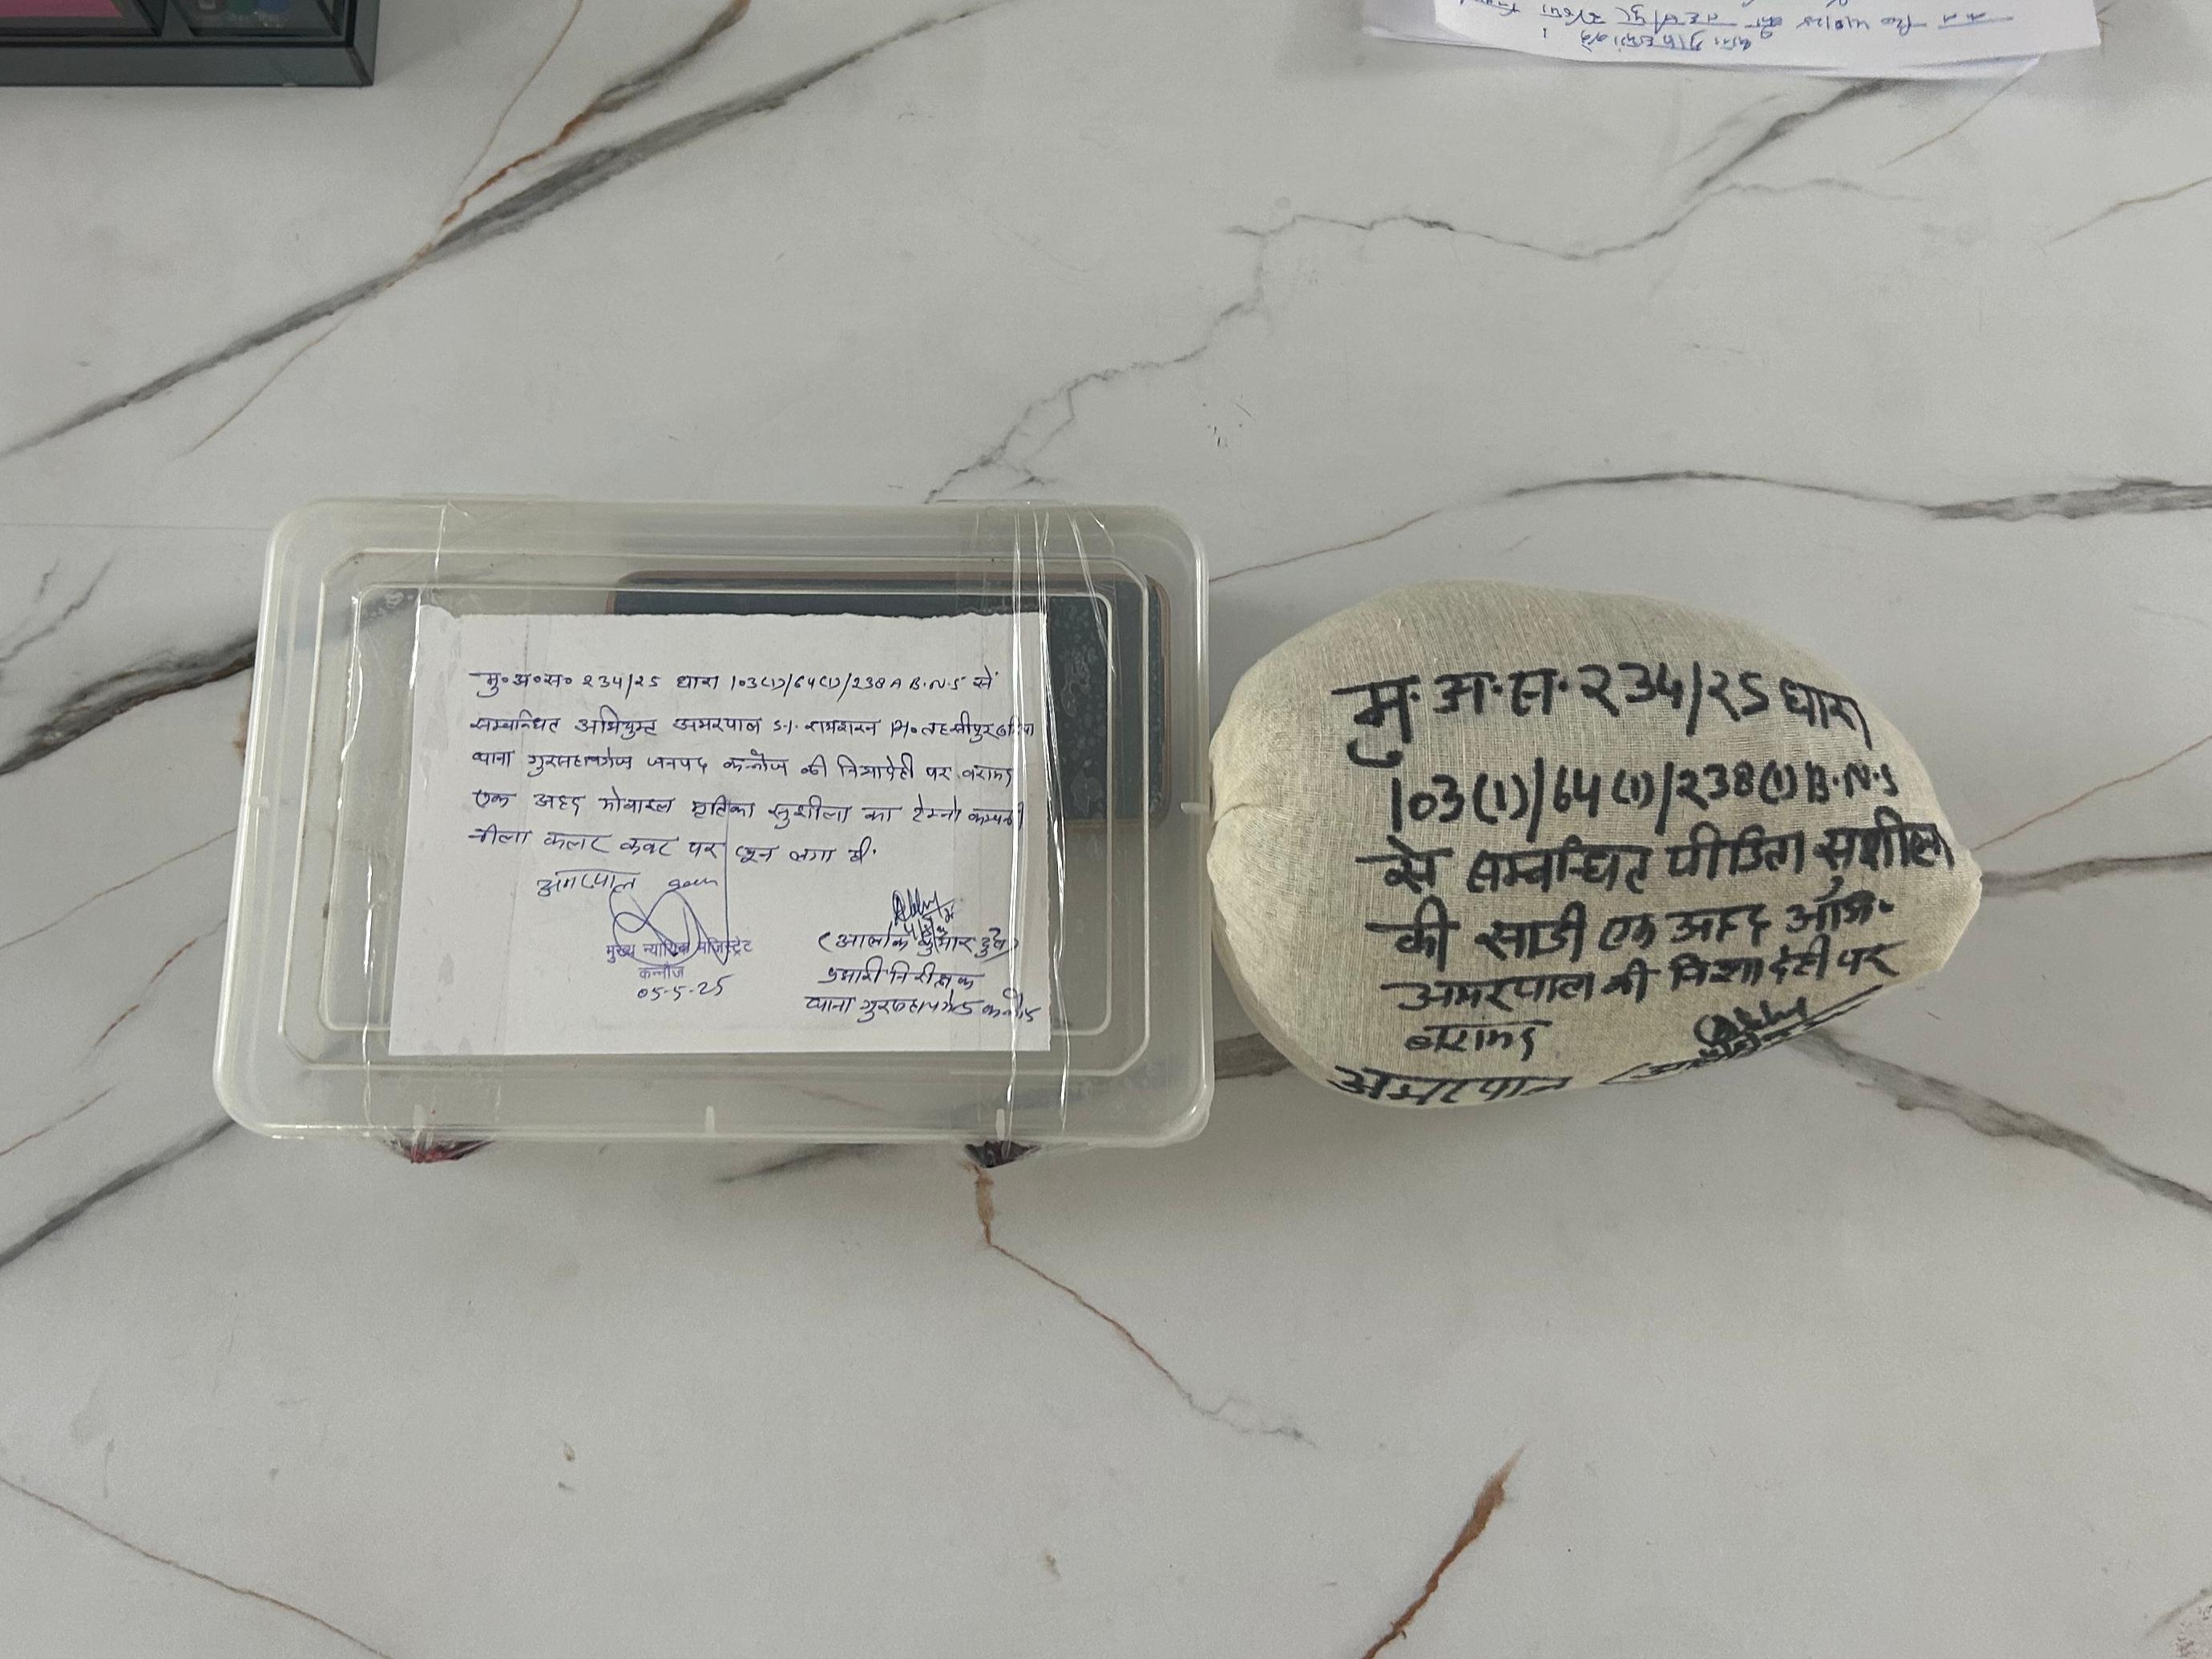 मु०अ०स० २34/२5 धारा 103(1)/64(1)/238A B.N.S से
सम्बन्धित अभियुक्त अमरपाल S/. रामशरन
थाना गुरसहायगंज जनपद कन्नौज की निशादेही पर बरामद
एक अदद मोबाइल मृतिका सुशीला का टेक्नो कम्पनी
नीला कलर कवर पर खून लगा है.
अमरपाल
मुख्य न्यायिक मजिस्ट्रेट
कन्नौज
05-5-25
(आलोक कुमार दुबे)
प्रभारी निरीक्षक
थाना गुरसहायगंज कन्नौज
मु.अ.स.२34/२5 धारा
103(1)/64(1)/२38(1)B.N.S
से सम्बन्धित पीडिता सुशीला
की साडी एक अदद अभि.
अमरपाल की निशादेही पर
बरामद
अमरपाल